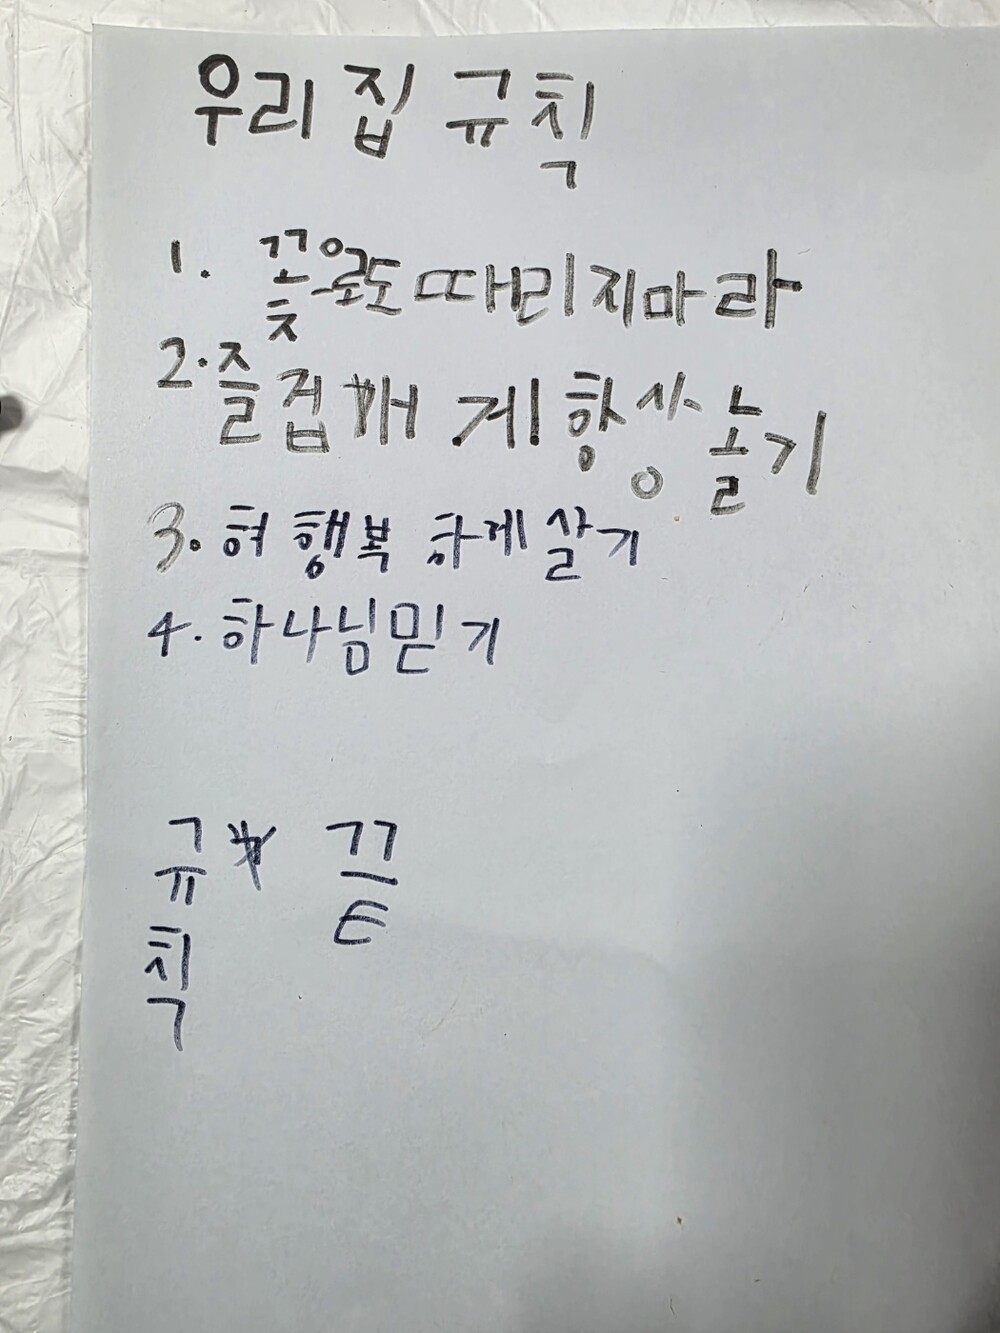 우리 집 규칙
1. 꽃으로도 때리지마라
2. 즐겁게 항상 놀기
3. 혀 행복 하게 살기
4. 하나님믿기
규칙 끝